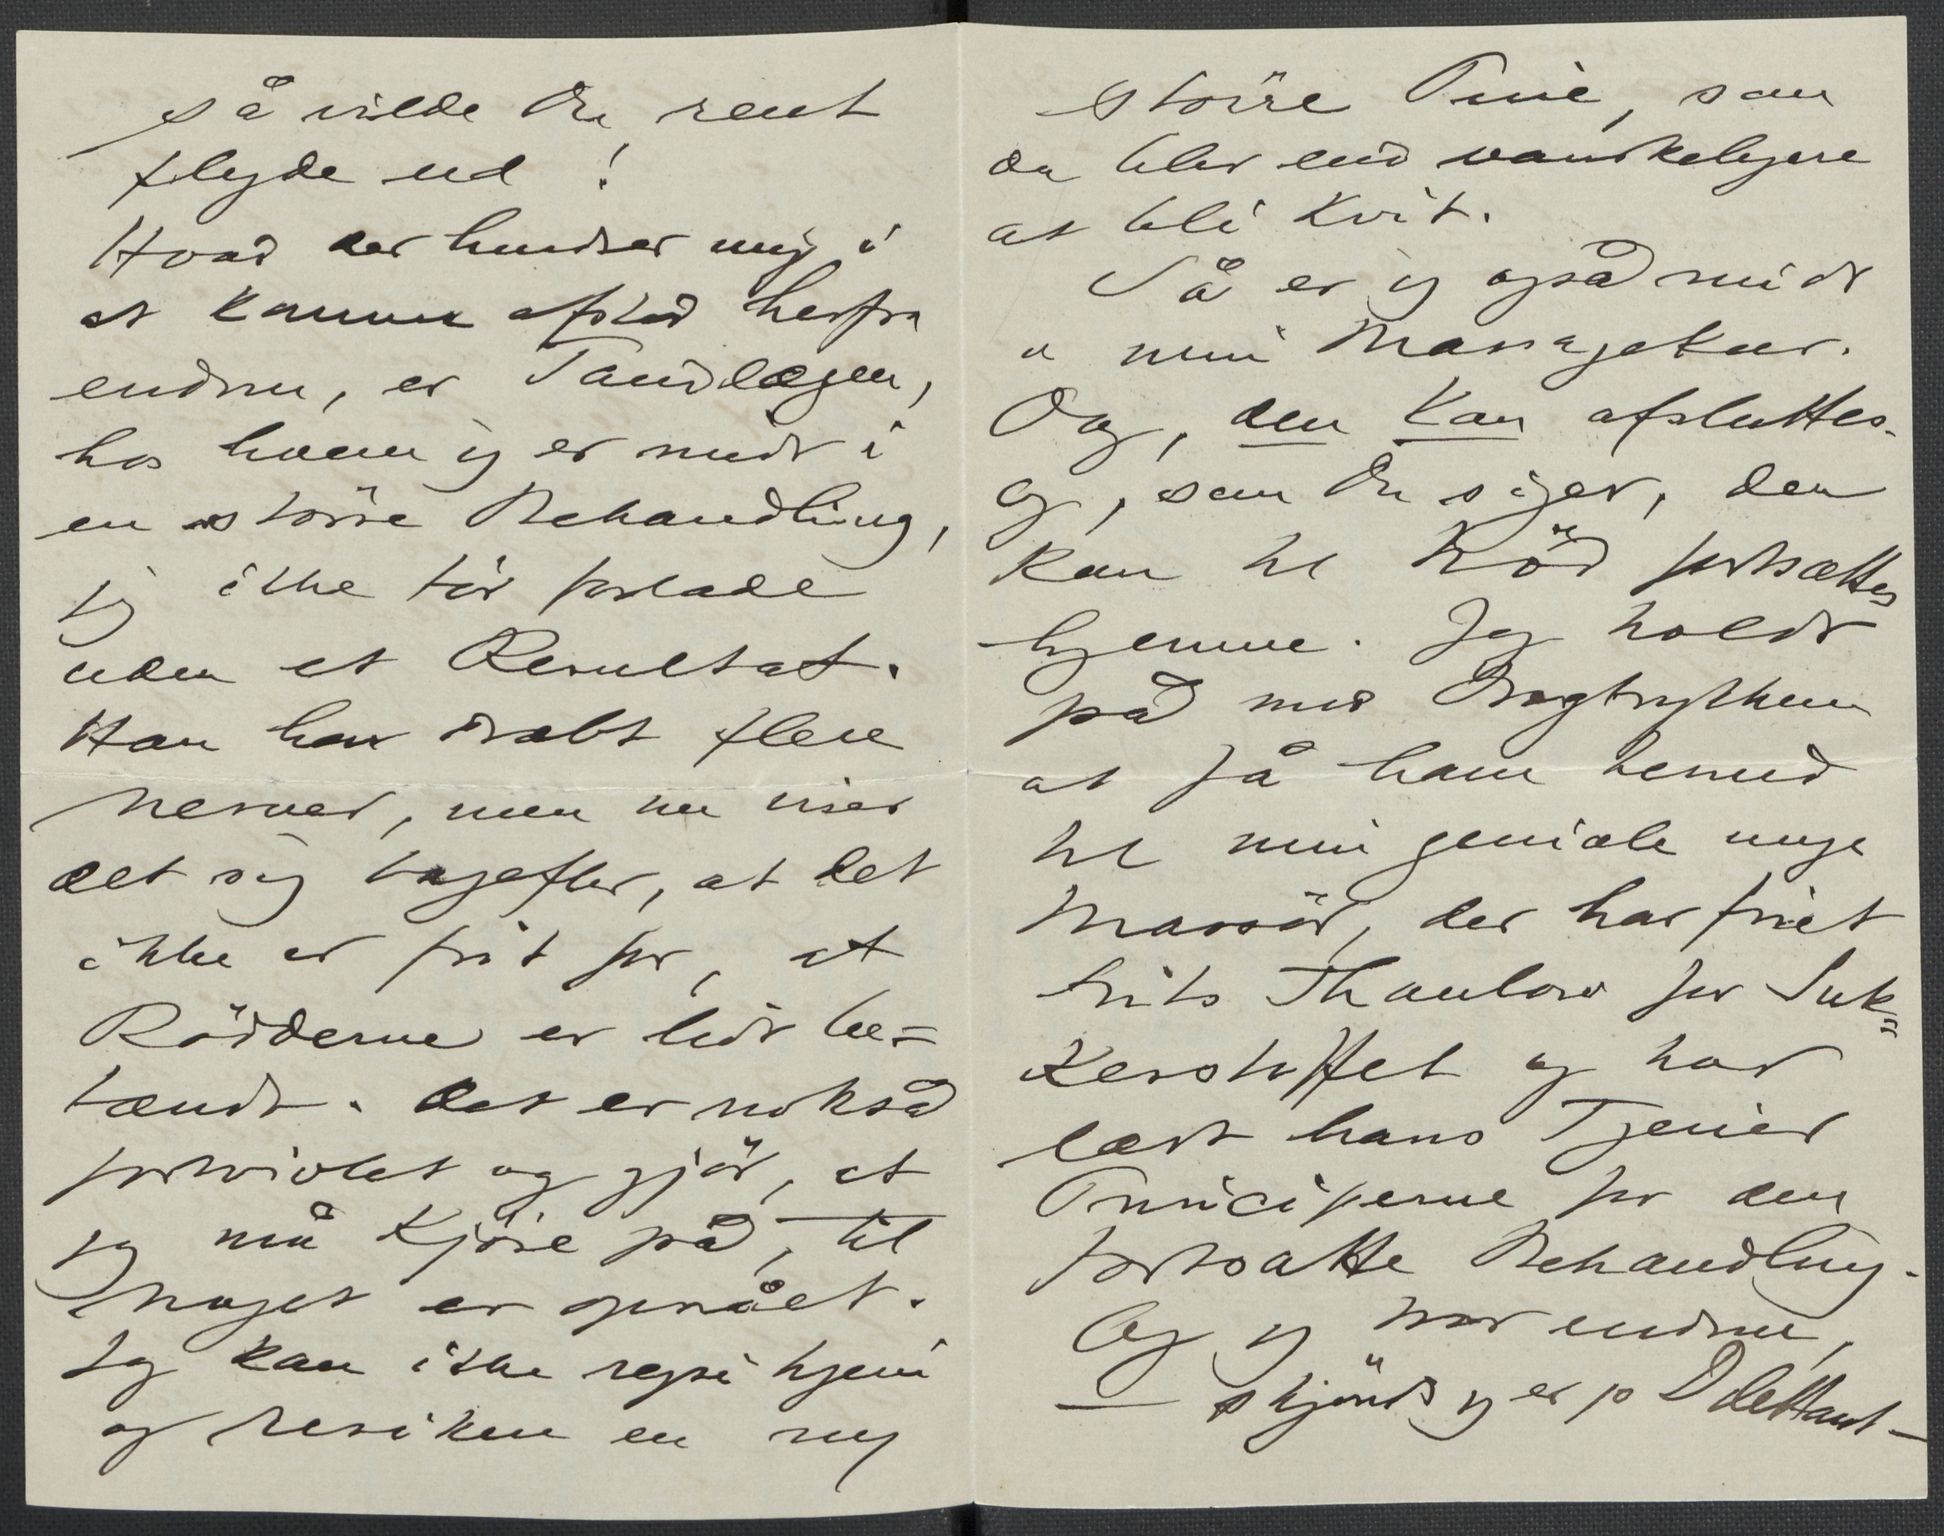 så vilde Du rent
flyde ud!
Hvad der hindrer mig i
at komme afsted herfra
endnu, er Tandlægen,
hos hvem jeg er midt i
en större Behandling,
jeg ikke tör forlade
uden et Resultat.
Han har dræbt flere
Nerver, men nu viser
det sig bagefter, at det
ikke er frit for, at
Rödderne er lidt be=
tændt. Det er nokså
fortvivlet og gjör, at
jeg må kjöre på, til
Noget er opnået.
Jeg kan ikke rejse hjem
og resikere en ny
större Pine, som
da blir end vanskeligere
at bli kvit.
Så er jeg også midt
i min Massagekur.
Dog, den kan afsluttes.
og, som Du siger, den
kan til Nöd fortsættes
hjemme. Jeg holdt
på med Dragtrykkeren
at få ham hemmed
til min geniale unge
Massör, der har friet
Frits Thaulow for Suk=
kerstoffet og har
lært hans Tjener
Principerne for den
fortsatte Behandling.
Og jeg tror endnu,
— skjöndt jeg er jo Dilettant —